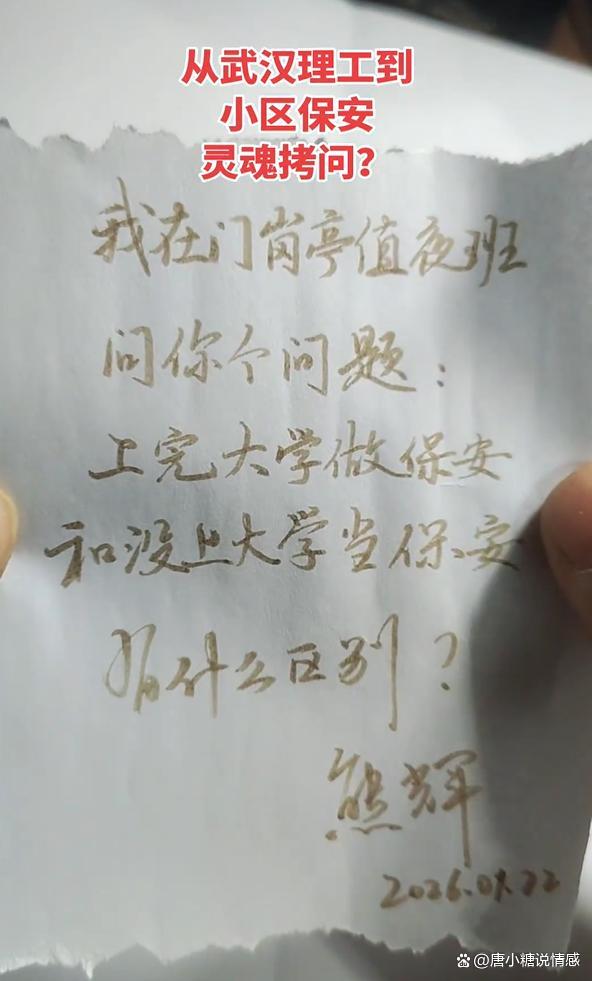 从武汉理工到
小区保安
灵魂拷问？
我在门岗亭值夜班
问你个问题：
上完大学做保安
和没上大学当保安
有什么区别？
熊辉
2026.01.22
唐小糖说情感